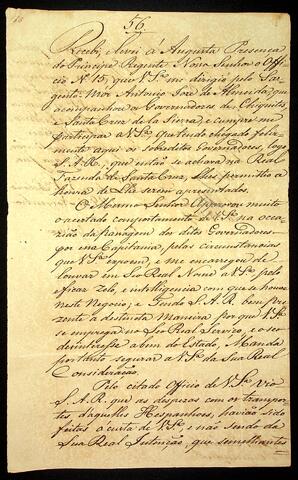 56.
Recebi, e levei á Augusta Presença
do Principe Regente Nosso Senhor o Offi-
cio Nº 15, que V.Sª me dirigio pelo Sar-
gento Mór Antonio José de Almeida, que
acompanhou os Governadores de Chiquitos,
e Santa Cruz de la Sierra; e cumpre-me
participar a V.Sª, que tendo chegado feliz-
mente aqui os sobreditos Governadores, logo
S.A.R., que então se achava na Real
Fazenda de Santa Cruz, lhes permittio a
honra de Lhe serem apresentados.
O Mesmo Senhor Approvou muito
o acertado comportamento de V.Sª na occa-
zião da passagem dos ditos Governadores
por essa Capitania, pelas circunstancias
que V.Sª expoem, e me encarregou de
louvar em Seo Real Nome a V.Sª pelo
efficaz zelo, e intelligencia com que se houve
neste Negocio; e Tendo S.A.R. bem pre-
zente a distincta Maneira por que V.Sª
se emprega no Seo Real Serviço, e o seo
desinteresse a bem do Estado, Manda
portanto segurar a V.Sª da Sua Real
Consideração.
Pelo citado Officio de V.Sª vio
S.A.R. que as despezas com os transpor-
tes d'aquelles Hespanhoes, havião sido
feitas á custa de V.Sª, e não sendo da
Sua Real Intenção, que semelhantes